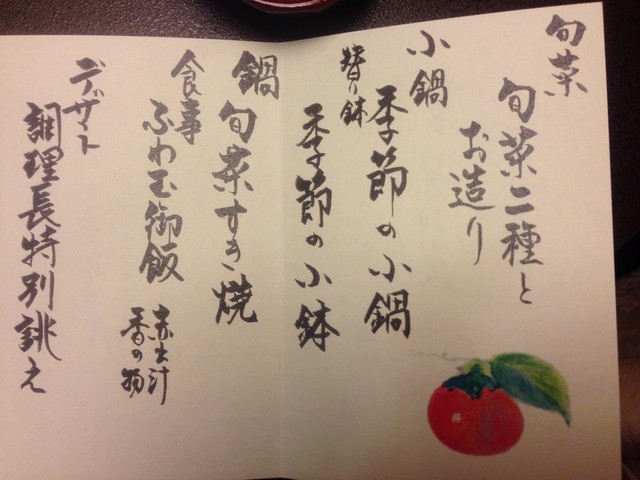 旬菜
旬菜二種と
お造り
小鍋
季節の小鍋
替り鉢
季節の小鉢
鍋
旬菜すき焼
食事
ふわ玉御飯
赤出汁
香の物
デザート
調理長特別誂え